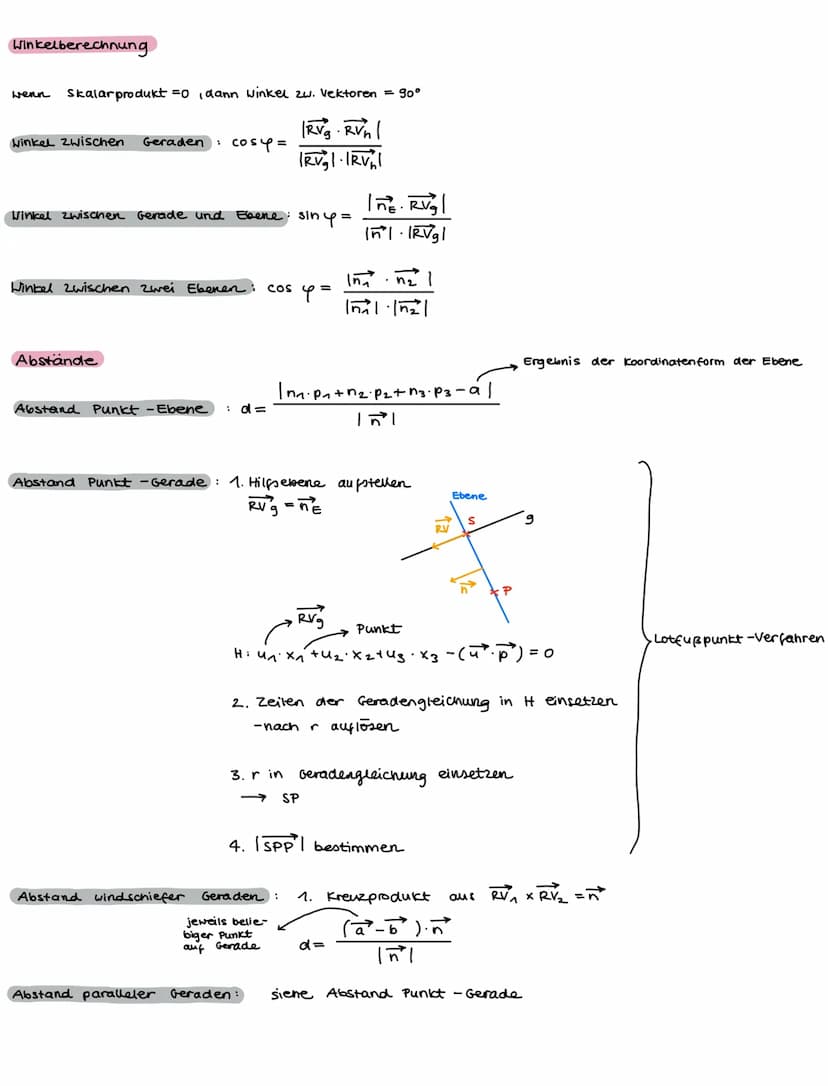 Winkelberechnung
wenn Skalarprodukt =0 , dann Winkel zw. Vektoren = 90°
Winkel zwischen Geraden : cos φ = |RVg⃗ · RVh⃗| / |RVg⃗| · |RVh⃗|
Winkel zwischen Gerade und Ebene : sin φ = |nE⃗ · RVg⃗| / |n⃗| · |RVg⃗|
Winkel zwischen zwei Ebenen : cos φ = |n₁⃗ · n₂⃗| / |n₁⃗| · |n₂⃗|
Abstände
Ergebnis der Koordinatenform der Ebene
Abstand Punkt - Ebene : d = |n₁·p₁+n₂·p₂+n₃·p₃-a| / |n⃗|
Abstand Punkt - Gerade : 1. Hilfsebene aufstellen
RVg⃗ = nE⃗
Ebene
RV⃗ S g
n⃗ P
RVg⃗
Punkt
H: u₁·x₁+u₂·x₂+u₃·x₃-(u⃗·p⃗) = 0
Lotfußpunkt-Verfahren
2. Zeilen der Geradengleichung in H einsetzen
-nach r auflösen
3. r in Geradengleichung einsetzen
→ SP
4. |SPP⃗| bestimmen
Abstand windschiefer Geraden : 1. Kreuzprodukt aus RV₁⃗ × RV₂⃗ = n⃗
jeweils belie-
biger Punkt
auf Gerade
d = (a⃗-b⃗)·n⃗ / |n⃗|
Abstand paralleler Geraden : siehe Abstand Punkt - Gerade